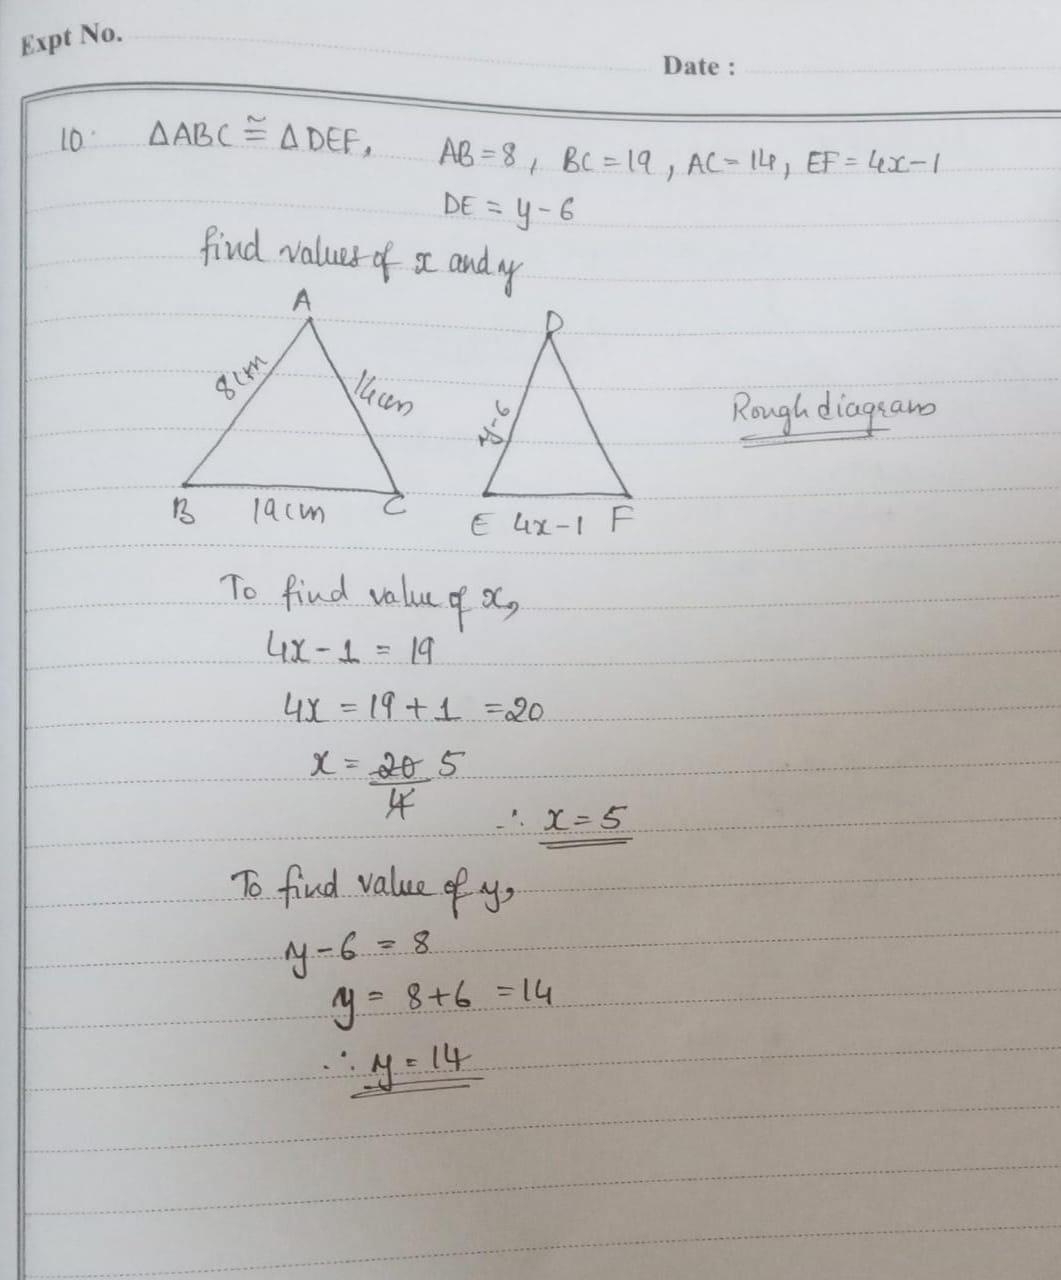 Expt No.
Date :
10. ΔABC ≅ ΔDEF, AB = 8, BC = 19, AC = 14, EF = 4x-1
DE = y - 6
find values of x and y
A
D
8cm
14cm
y-6
Rough diagram
B 19cm C
E 4x-1 F
To find value of x,
4x - 1 = 19
4x = 19 + 1 = 20
x = 20/4 5
∴ x = 5
To find value of y,
y - 6 = 8
y = 8+6 = 14
∴ y = 14